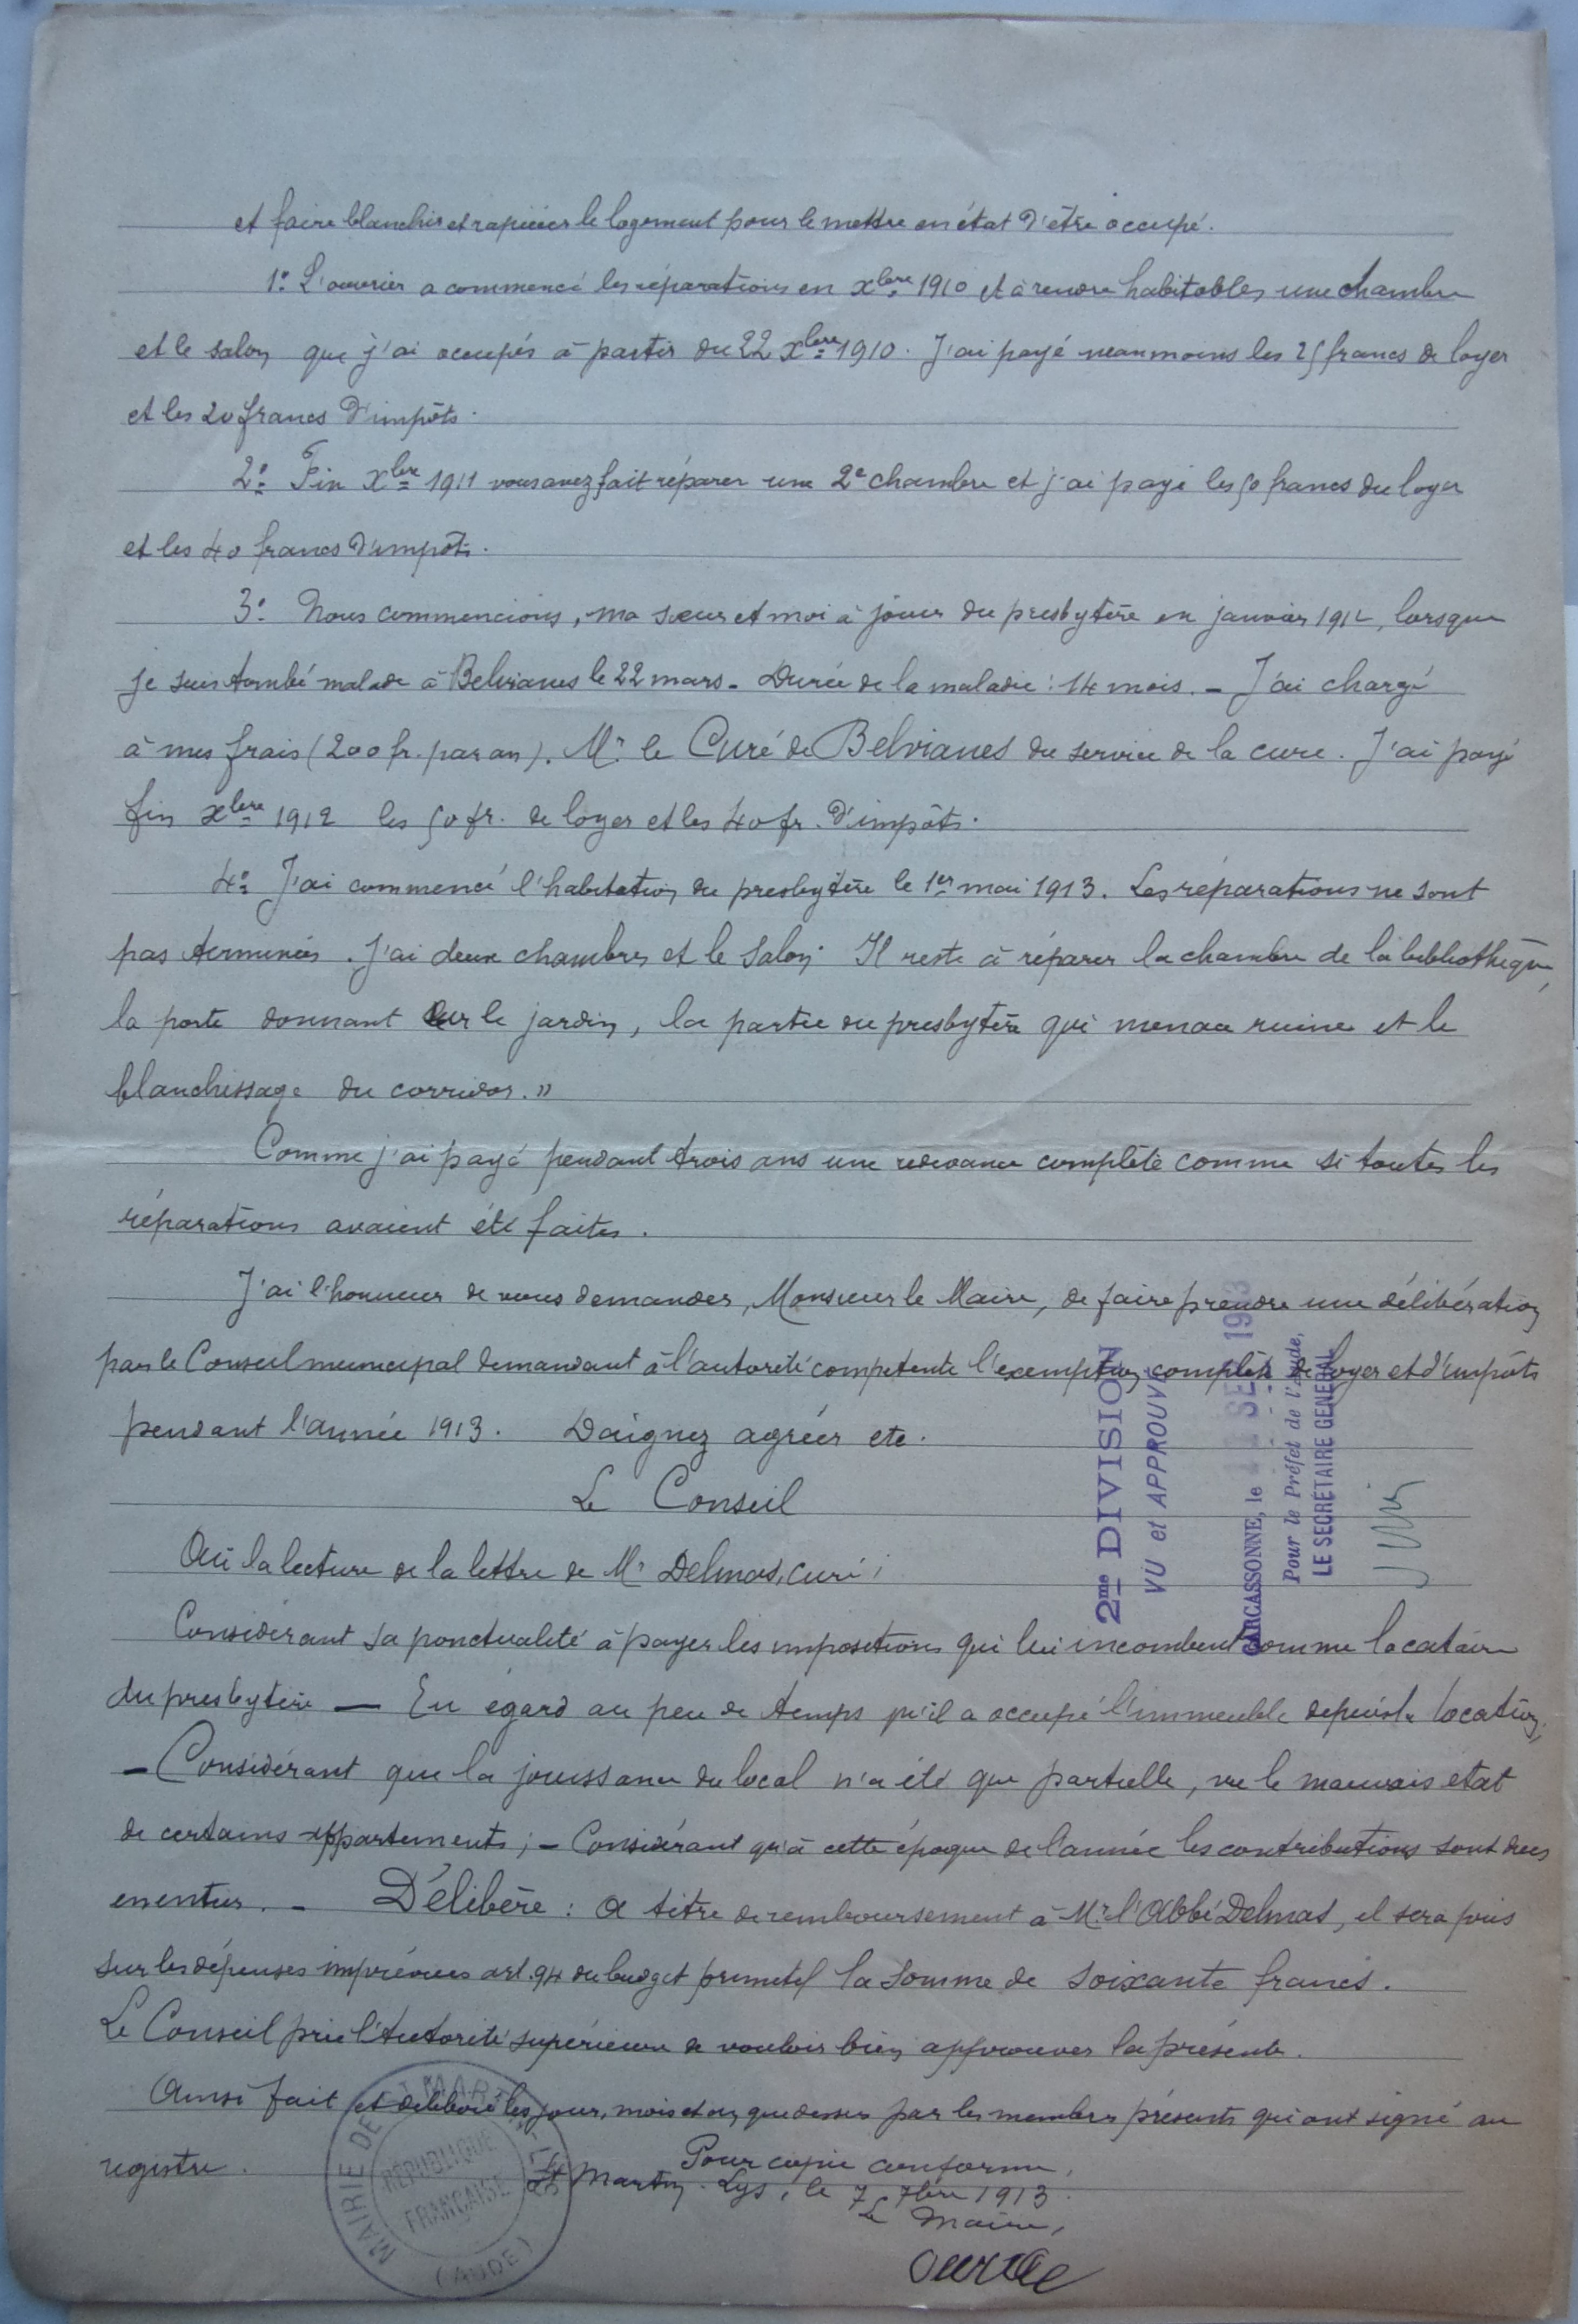 et faire blanchir et rapiécer le logement pour le mettre en état d'être occupé.
1º L'ouvrier a commencé les réparations en xbre 1910 et à rendre habitables une chambre
et le salon que j'ai occupés à partir du 22 xbre 1910. J'ai payé neanmoins les 25 francs de loyer
et les 20 francs d'impôts.
2º Fin xbre 1911 vous avez fait réparer une 2e chambre et j'ai payé les 50 francs du loyer
et les 40 francs d'impôts.
3º Nous commencions, ma sœur et moi à jouir du presbytère en janvier 1912, lorsque
je suis tombé malade à Belvianes le 22 mars - Durée de la maladie : 14 mois. - J'ai chargé
à mes frais (200 fr. par an). Mr le Curé de Belvianes du service de la cure. J'ai payé
fin xbre 1912 les 50 fr. de loyer et les 40 fr. d'impôts.
4º J'ai commencé l'habitation du presbytère le 1er mai 1913. Les réparations ne sont
pas terminées. J'ai deux chambres et le salon. Il reste à réparer la chambre de la bibliothèque,
la porte donnant sur le jardin, la partie du presbytère qui menace ruine et le
blanchissage du corridor. »
Comme j'ai payé pendant trois ans une redevance complète comme si toutes les
réparations avaient été faites.
J'ai l'honneur de vous demander, Monsieur le Maire, de faire prendre une délibération
par le Conseil municipal demandant à l'autorité compétente l'exemption complète de loyer et d'impôts
pendant l'année 1913. Daignez agréer etc.
Le Conseil
Ouï la lecture de la lettre de Mr Delmas, curé ;
Considérant sa ponctualité à payer les impositions qui lui incombent comme locataire
du presbytère — Eu égard au peu de temps qu'il a occupé l'immeuble depuis la location ;
- Considérant que la jouissance du local n'a été que partielle, vu le mauvais état
de certains appartements ; - Considérant qu'à cette époque de l'année les contributions sont dues
en entier. - Délibère : A titre de remboursement à Mr l'Abbé Delmas, il sera pris
sur les dépenses imprévues art. 94 du budget primitif la somme de soixante francs.
Le Conseil prie l'Autorité supérieure de vouloir bien approuver la présente.
Ainsi fait et délibéré les jour, mois et an que dessus par les membres présents qui ont signé au
registre.
Pour copie conforme,
St Martin-Lys, le 7 7bre 1913.
Le Maire,
2me DIVISION
VU et APPROUVÉ
CARCASSONNE, le SE 1913
Pour le Préfet de l'Aude,
LE SECRÉTAIRE GÉNÉRAL
MAIRIE DE St MARTIN-LYS
RÉPUBLIQUE
FRANÇAISE
(AUDE)